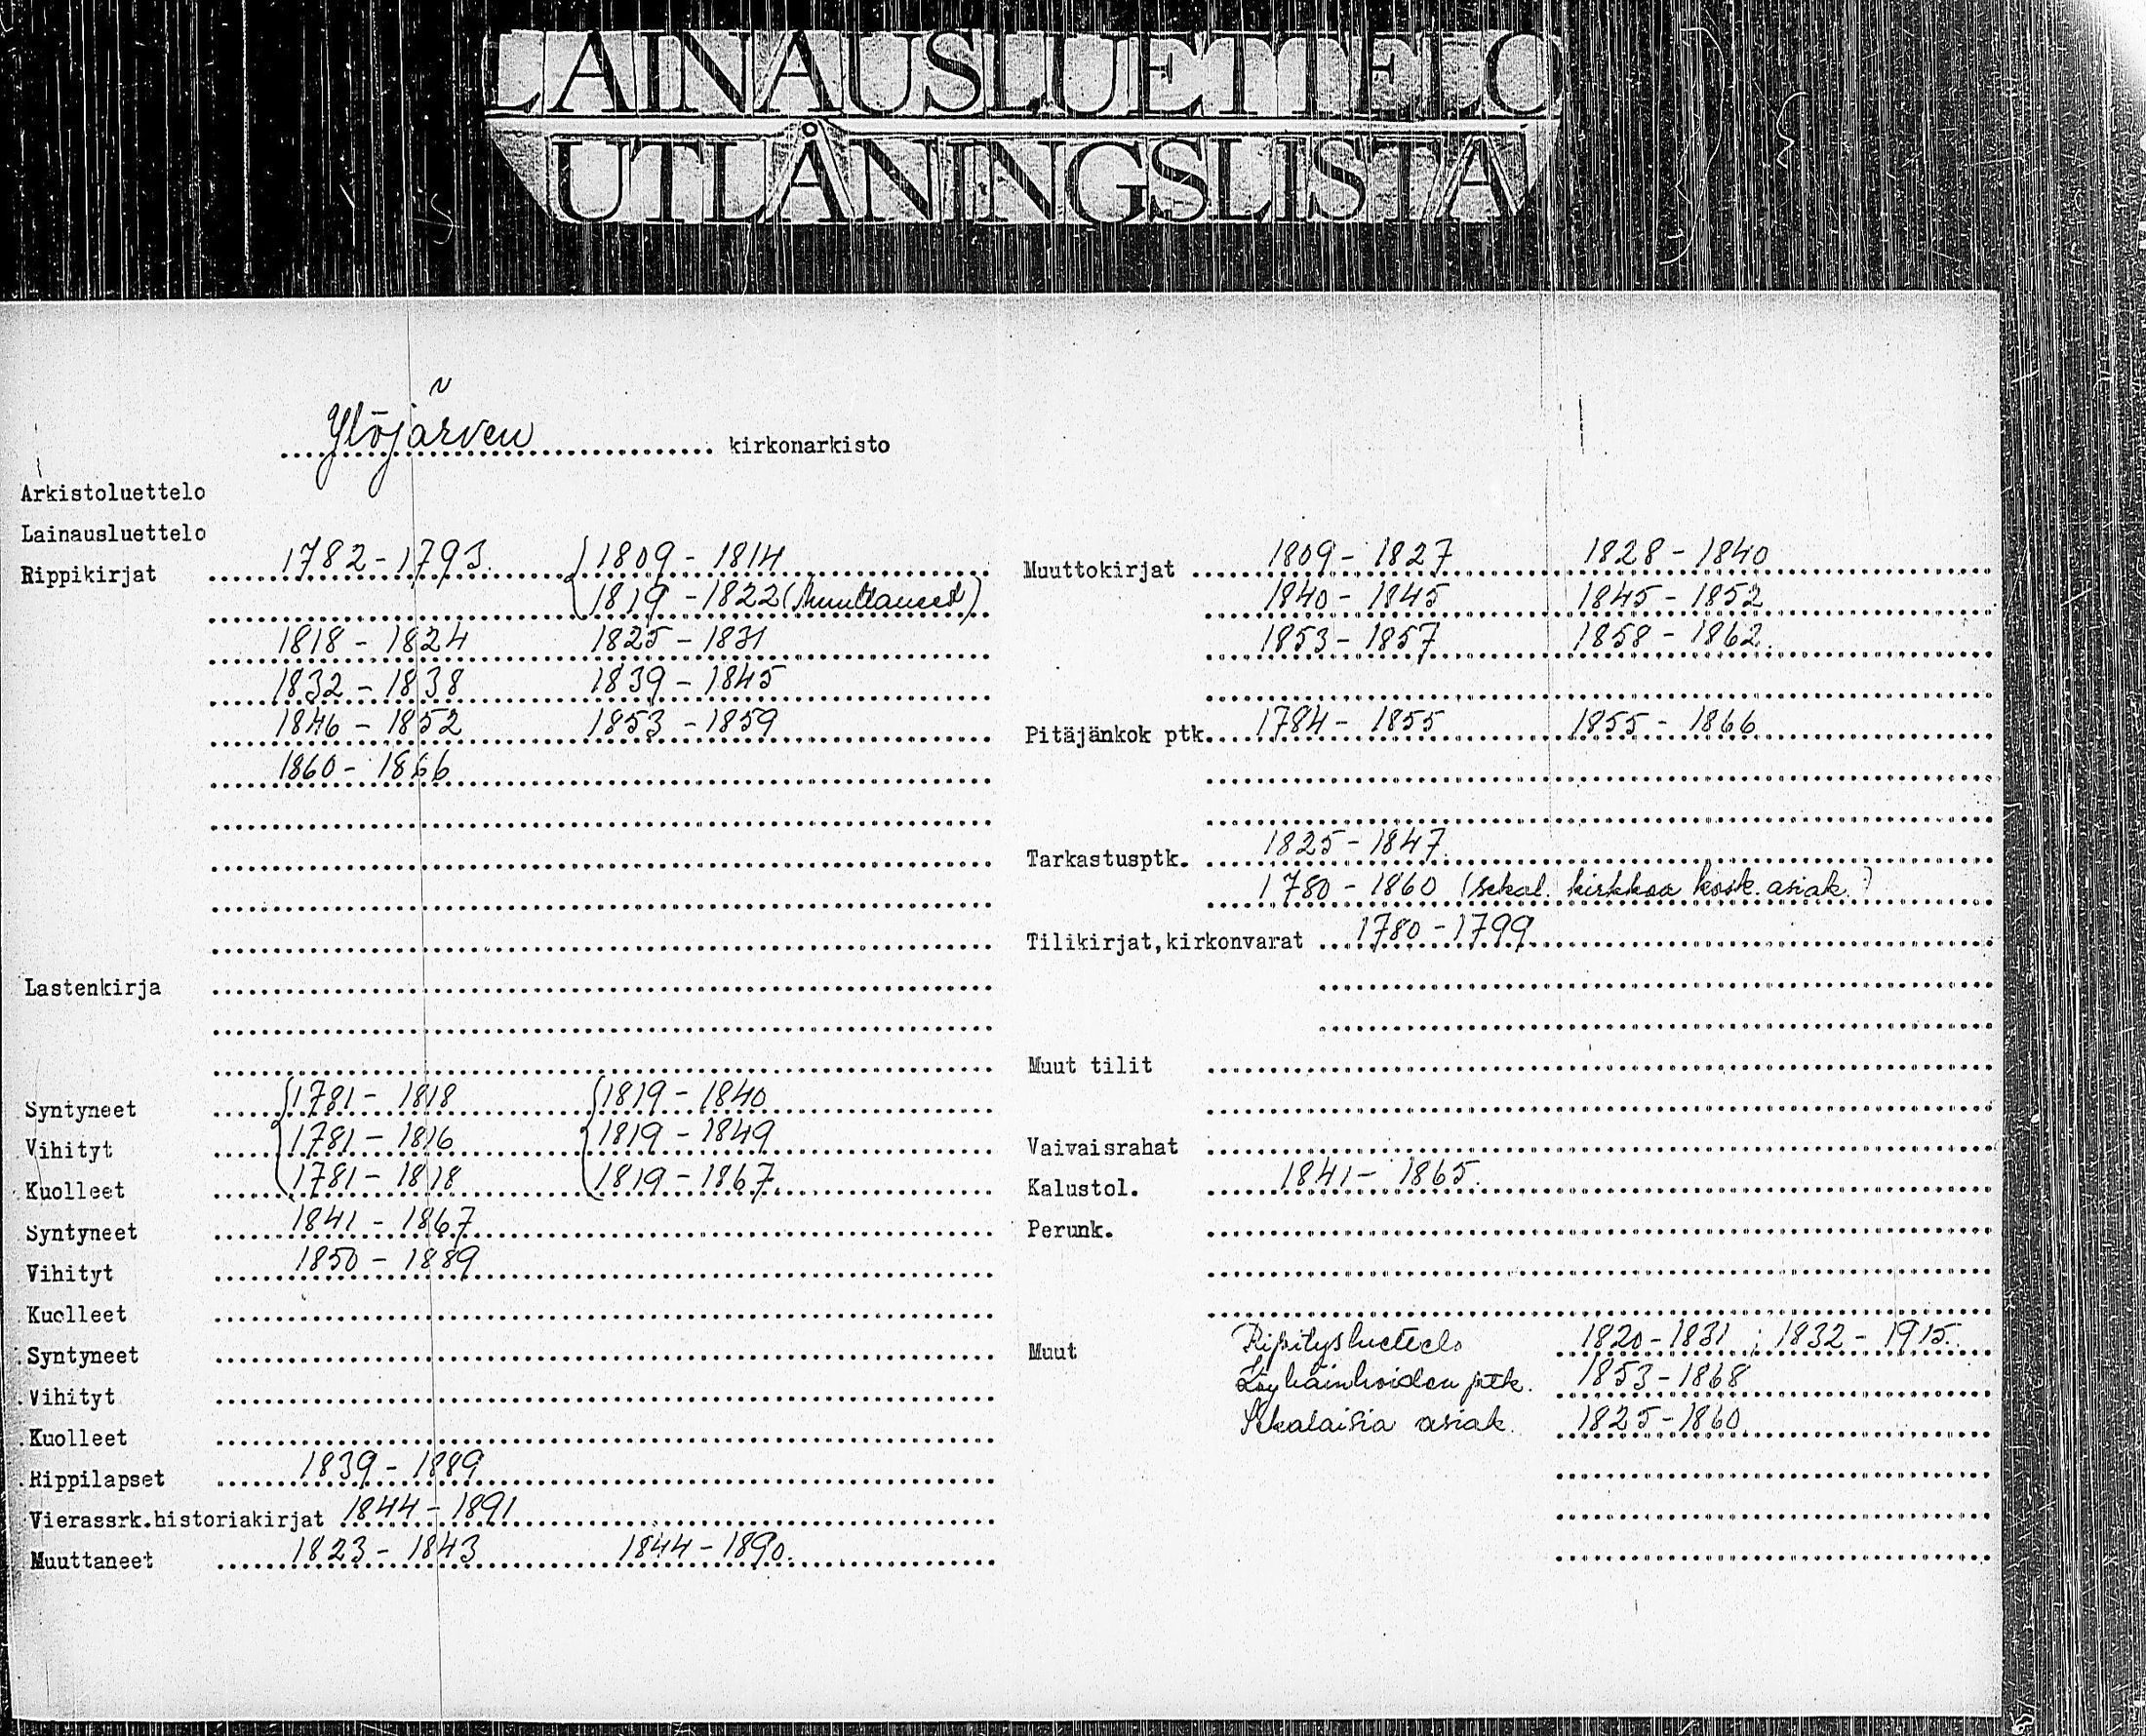 LAINAUSLUETTELO
UTLÅNINGSLISTA
Ylöjärven kirkonarkisto
Arkistoluettelo
Lainausluettelo
Rippikirjat 1782-1793. 1809 - 1814
1819 - 1822 (Muuttaneet)
1818 - 1824 1825 - 1831
1832 - 1838 1839 - 1845
1846 - 1852 1853 - 1859
1860 - 1866
Lastenkirja
Syntyneet 1781 - 1818 1819 - 1840
Vihityt 1781 - 1816 1819 - 1849
Kuolleet 1781 - 1818 1819 - 1867.
Syntyneet 1841 - 1867
Vihityt 1850 - 1889
Kuolleet
Syntyneet
Vihityt
Kuolleet
Rippilapset 1839 - 1889
Vierassrk.historiakirjat 1844 - 1891
Muuttaneet 1823 - 1843 1844 - 1890.
Muuttokirjat 1809 - 1827 1828 - 1840
1840 - 1845 1845 - 1852
1853 - 1857 1858 - 1862.
Pitäjänkok ptk. 1784 - 1855 1855 - 1866
Tarkastusptk. 1825 - 1847.
1780 - 1860 (sekal. kirkkoa kosk. asiak.)
Tilikirjat,kirkonvarat 1780 - 1799
Muut tilit
Vaivaisrahat
Kalustol. 1841 - 1865.
Perunk.
Muut Ripitysluettelo 1820-1831 ; 1832 - 1915.
Köyhäinhoidon ptk. 1853-1868
Sekalaisia asiak. 1825-1860.